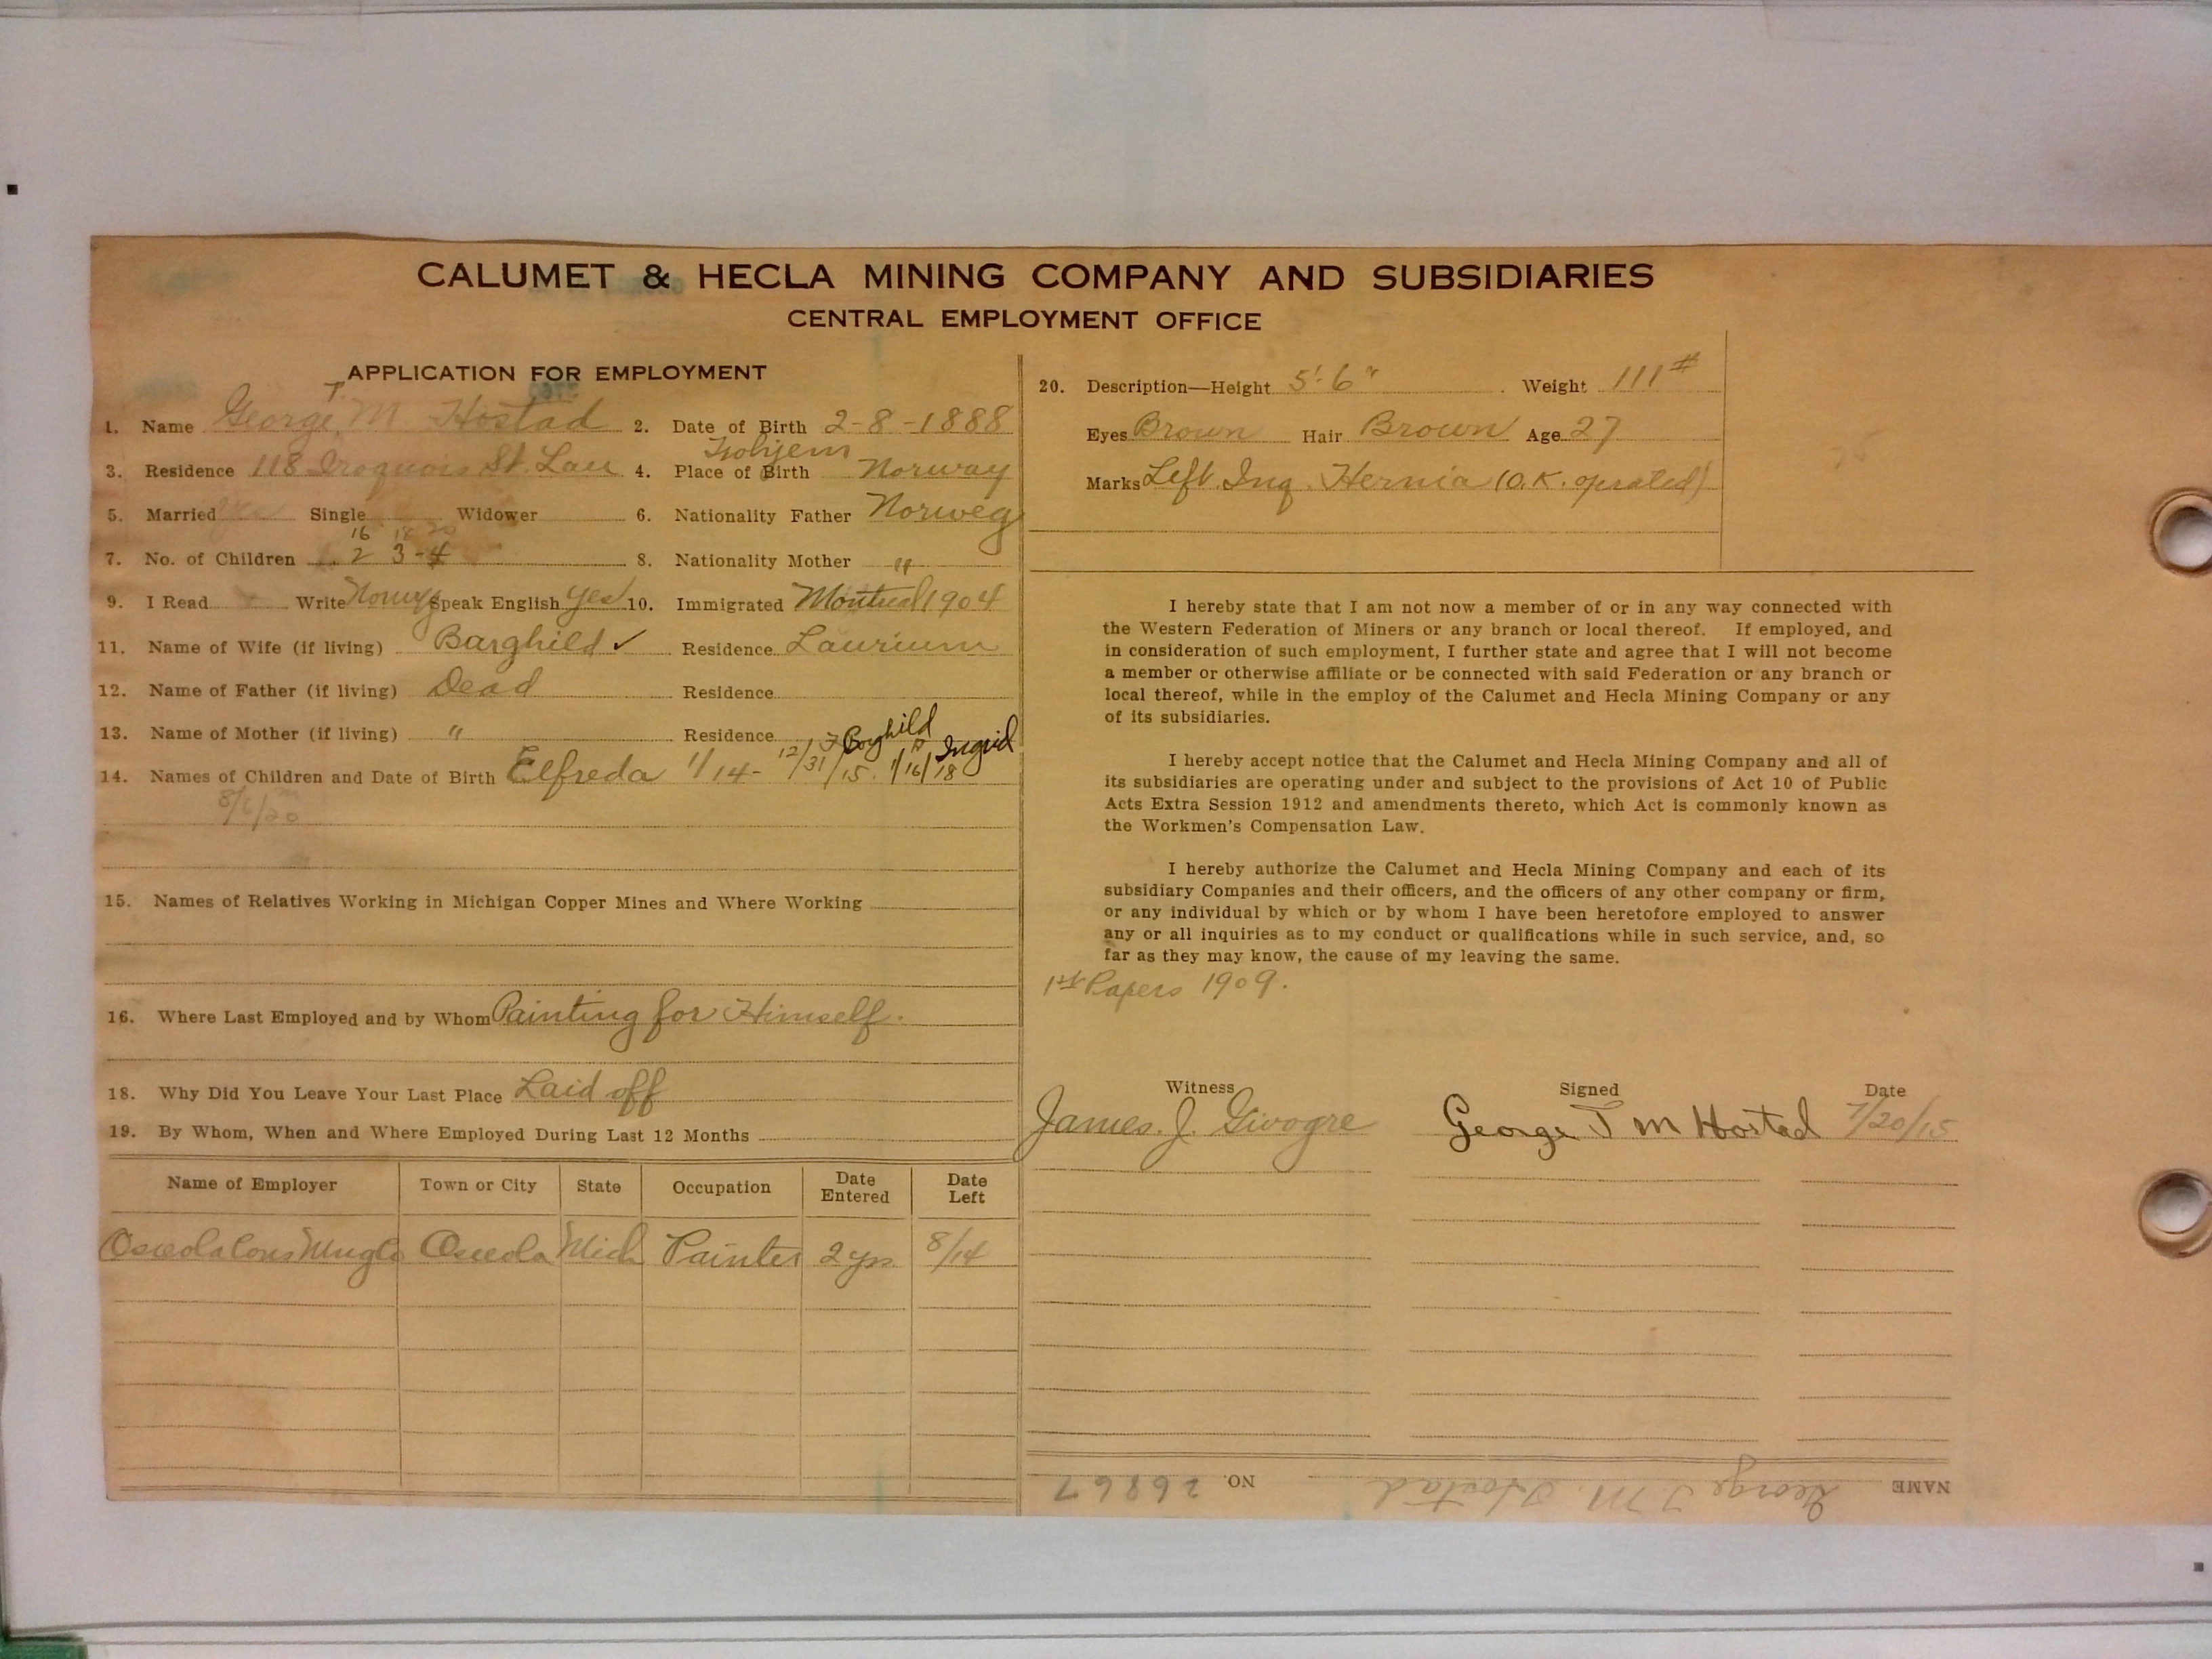 CALUMET & HECLA MINING COMPANY AND SUBSIDIARIES
CENTRAL EMPLOYMENT OFFICE
APPLICATION FOR EMPLOYMENT
1. Name George T. M Hostad 2. Date of Birth 2-8-1888
3. Residence 118 Iroquois St. Lau 4. Place of Birth Norway
5. Married Yes Single Widower 6. Nationality Father Norweg
16 18 20
7. No. of Children 1. 2 3-4 8. Nationality Mother "
9. I Read Write Norwg Speak English Yes 10. Immigrated Montreal 1904
11. Name of Wife (if living) Barghild ✓ Residence Laurium
12. Name of Father (if living) Dead Residence
13. Name of Mother (if living) " Residence
Borghild Ingrid
14. Names of Children and Date of Birth Elfreda 1/14- 12/31/15. 1/16/18
8/6/20
15. Names of Relatives Working in Michigan Copper Mines and Where Working
16. Where Last Employed and by Whom Painting for Himself.
18. Why Did You Leave Your Last Place Laid off
19. By Whom, When and Where Employed During Last 12 Months
Name of Employer Town or City State Occupation Date Entered Date Left
Osceola Cons Mng Co Osceola Mich Painter 2 yrs. 8/14
20. Description—Height 5'-6" Weight 111#
Eyes Brown Hair Brown Age 27
Marks Left Ing. Hernia (O.K. operated)
I hereby state that I am not now a member of or in any way connected with
the Western Federation of Miners or any branch or local thereof. If employed, and
in consideration of such employment, I further state and agree that I will not become
a member or otherwise affiliate or be connected with said Federation or any branch or
local thereof, while in the employ of the Calumet and Hecla Mining Company or any
of its subsidiaries.
I hereby accept notice that the Calumet and Hecla Mining Company and all of
its subsidiaries are operating under and subject to the provisions of Act 10 of Public
Acts Extra Session 1912 and amendments thereto, which Act is commonly known as
the Workmen's Compensation Law.
I hereby authorize the Calumet and Hecla Mining Company and each of its
subsidiary Companies and their officers, and the officers of any other company or firm,
or any individual by which or by whom I have been heretofore employed to answer
any or all inquiries as to my conduct or qualifications while in such service, and, so
far as they may know, the cause of my leaving the same.
1st Papers 1909.
Witness Signed Date
James. J. Givogre George T M Hostad 7/20/15
NAME George T M. Hostad NO. 26867